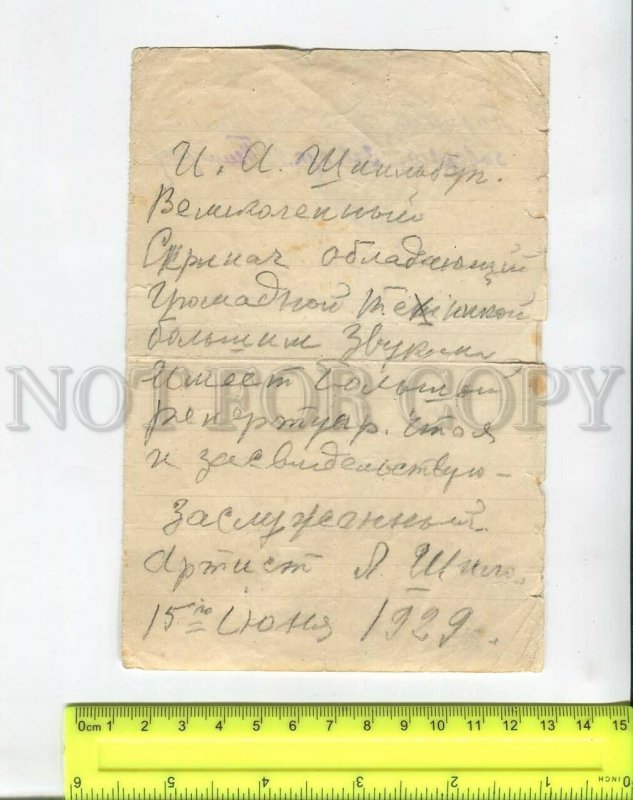 И. А.
Великоленный
Скрипач обладающий
громадной техникой
большим звуком
Имеет большой
репертуар. что я
и засвидельствую -
Заслуженный
Артист Я.
15го Июня 1929.
NOT FOR COPY
0cm 1 2 3 4 5 6 7 8 9 10 11 12 13 14 15
6 5 4 3 2 1 INCH